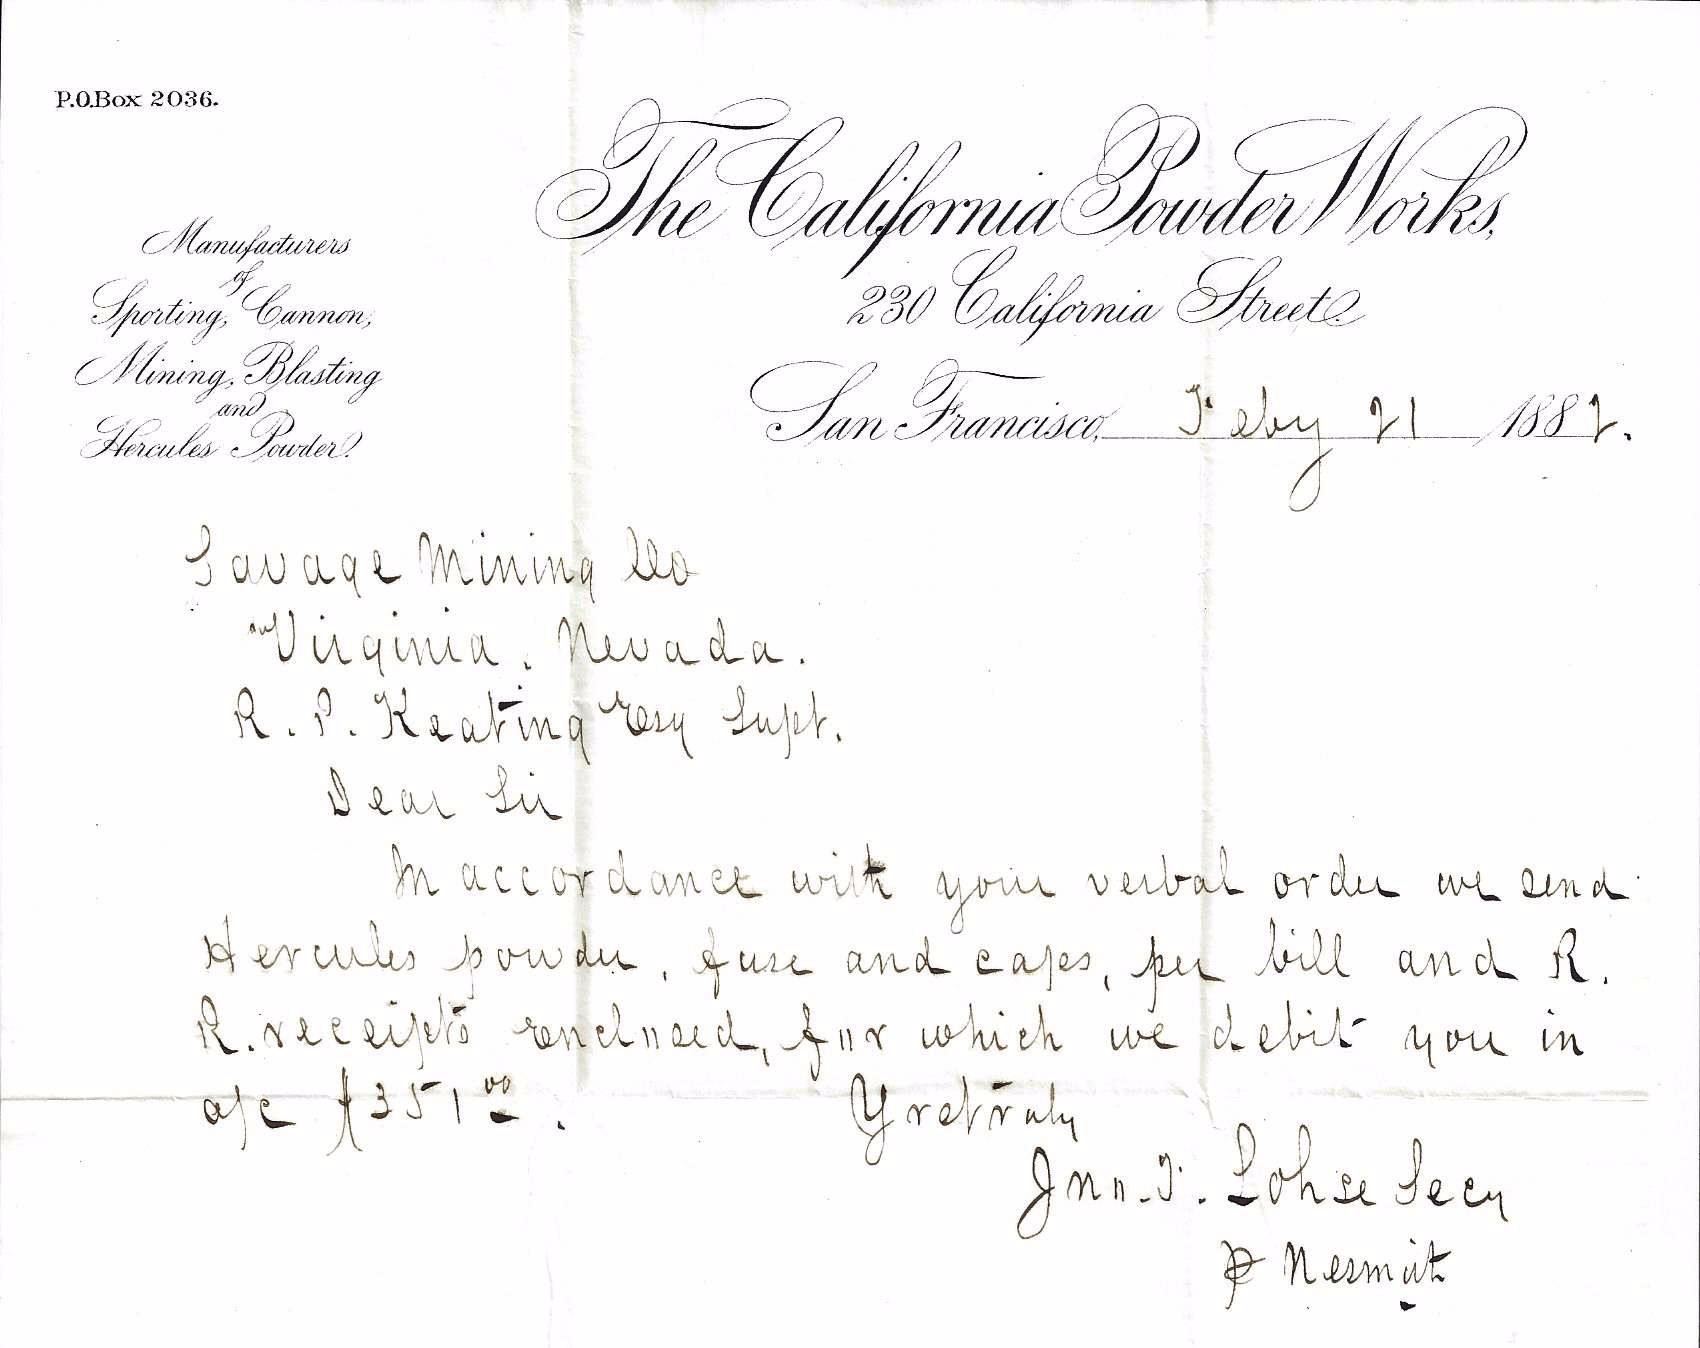 P.O.Box 2036.
The California Powder Works,
230 California Street.
San Francisco, Feby 21 1882.
Manufacturers
of
Sporting, Cannon,
Mining, Blasting
and
Hercules Powder.
Savage Mining Co
Virginia, Nevada.
R. P. Keating Esq Supt.
Dear Sir
In accordance with your verbal order we send
Hercules powder, fuse and caps, per bill and R.
R. receipts enclosed, for which we debit you in
a/c $351 00.
Yrs truly
Jno. F. Lohse Secy